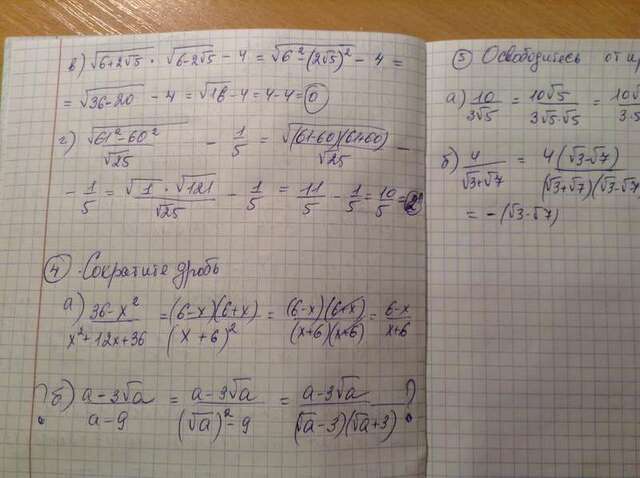 в) √(6+2√5) · √(6-2√5) - 4 = √(6² - (2√5)²) - 4 =
= √(36-20) - 4 = √16 - 4 = 4-4 = 0
г) √(61²-60²)/√25 - 1/5 = √((61-60)(61+60))/√25 -
- 1/5 = √1 · √121/√25 - 1/5 = 11/5 - 1/5 = 10/5 = 2
④ Сократите дробь
а) (36-x²)/(x²+12x+36) = (6-x)(6+x)/(x+6)² = (6-x)(6+x)/(x+6)(x+6) = (6-x)/(x+6)
? б) (a-3√a)/(a-9) = (a-3√a)/((√a)²-9) = (a-3√a)/(√a-3)(√a+3) ?
⑤ Освободитесь от
а) 10/3√5 = 10√5/3√5·√5 = 10√5/3·5
б) 4/(√3+√7) = 4(√3-√7)/(√3+√7)(√3-√7)
= -(√3-√7)